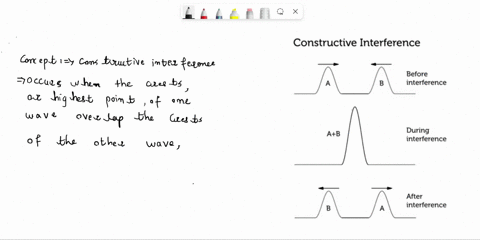 Concept :⇒ Constructive interference
⇒ occurs when the crests,
or highest point, of one
wave overlap the crests
of the other wave,
Constructive Interference
A
B
Before
interference
A+B
During
interference
B
A
After
interference